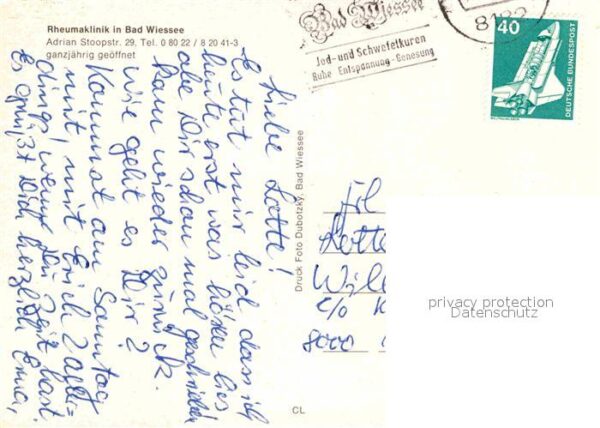 Rheumaklinik in Bad Wiessee
Adrian Stoopstr. 29, Tel. 0 80 22 / 8 20 41-3
ganzjährig geöffnet
Bad Wiessee
Jod- und Schwefelkuren
Ruhe - Entspannung - Genesung
8182
40
DEUTSCHE BUNDESPOST
Liebe Lotte!
Es tut mir leid dass ich
heute erst was hören lies
abe Dir schon mal geschrieben
kam wieder zurück.
wie geht es Dir?
Kommst am Samstag
mit, mit Erich
wenn Du Zeit hast.
Es grüßt Dich herzlich Erna,
Druck Foto Dubotzky, Bad Wiessee
CL
Frl
Lotte
c/o
8000
privacy protection
Datenschutz